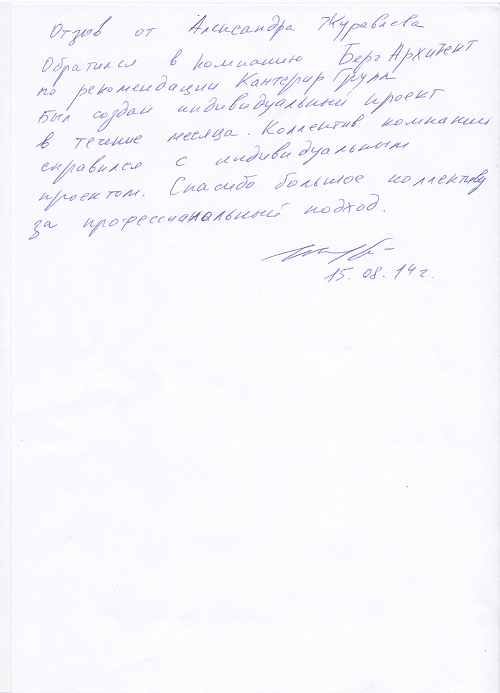 Отзыв от Александра Журавлева
Обратился в компанию БергАрхитект
по рекомендации Кантерир Групп
Был создан индивидуальный проект
в течение месяца. Коллектив компании
справился с индивидуальным
проектом. Спасибо большое коллективу
за профессиональный подход.
15.08.14г.